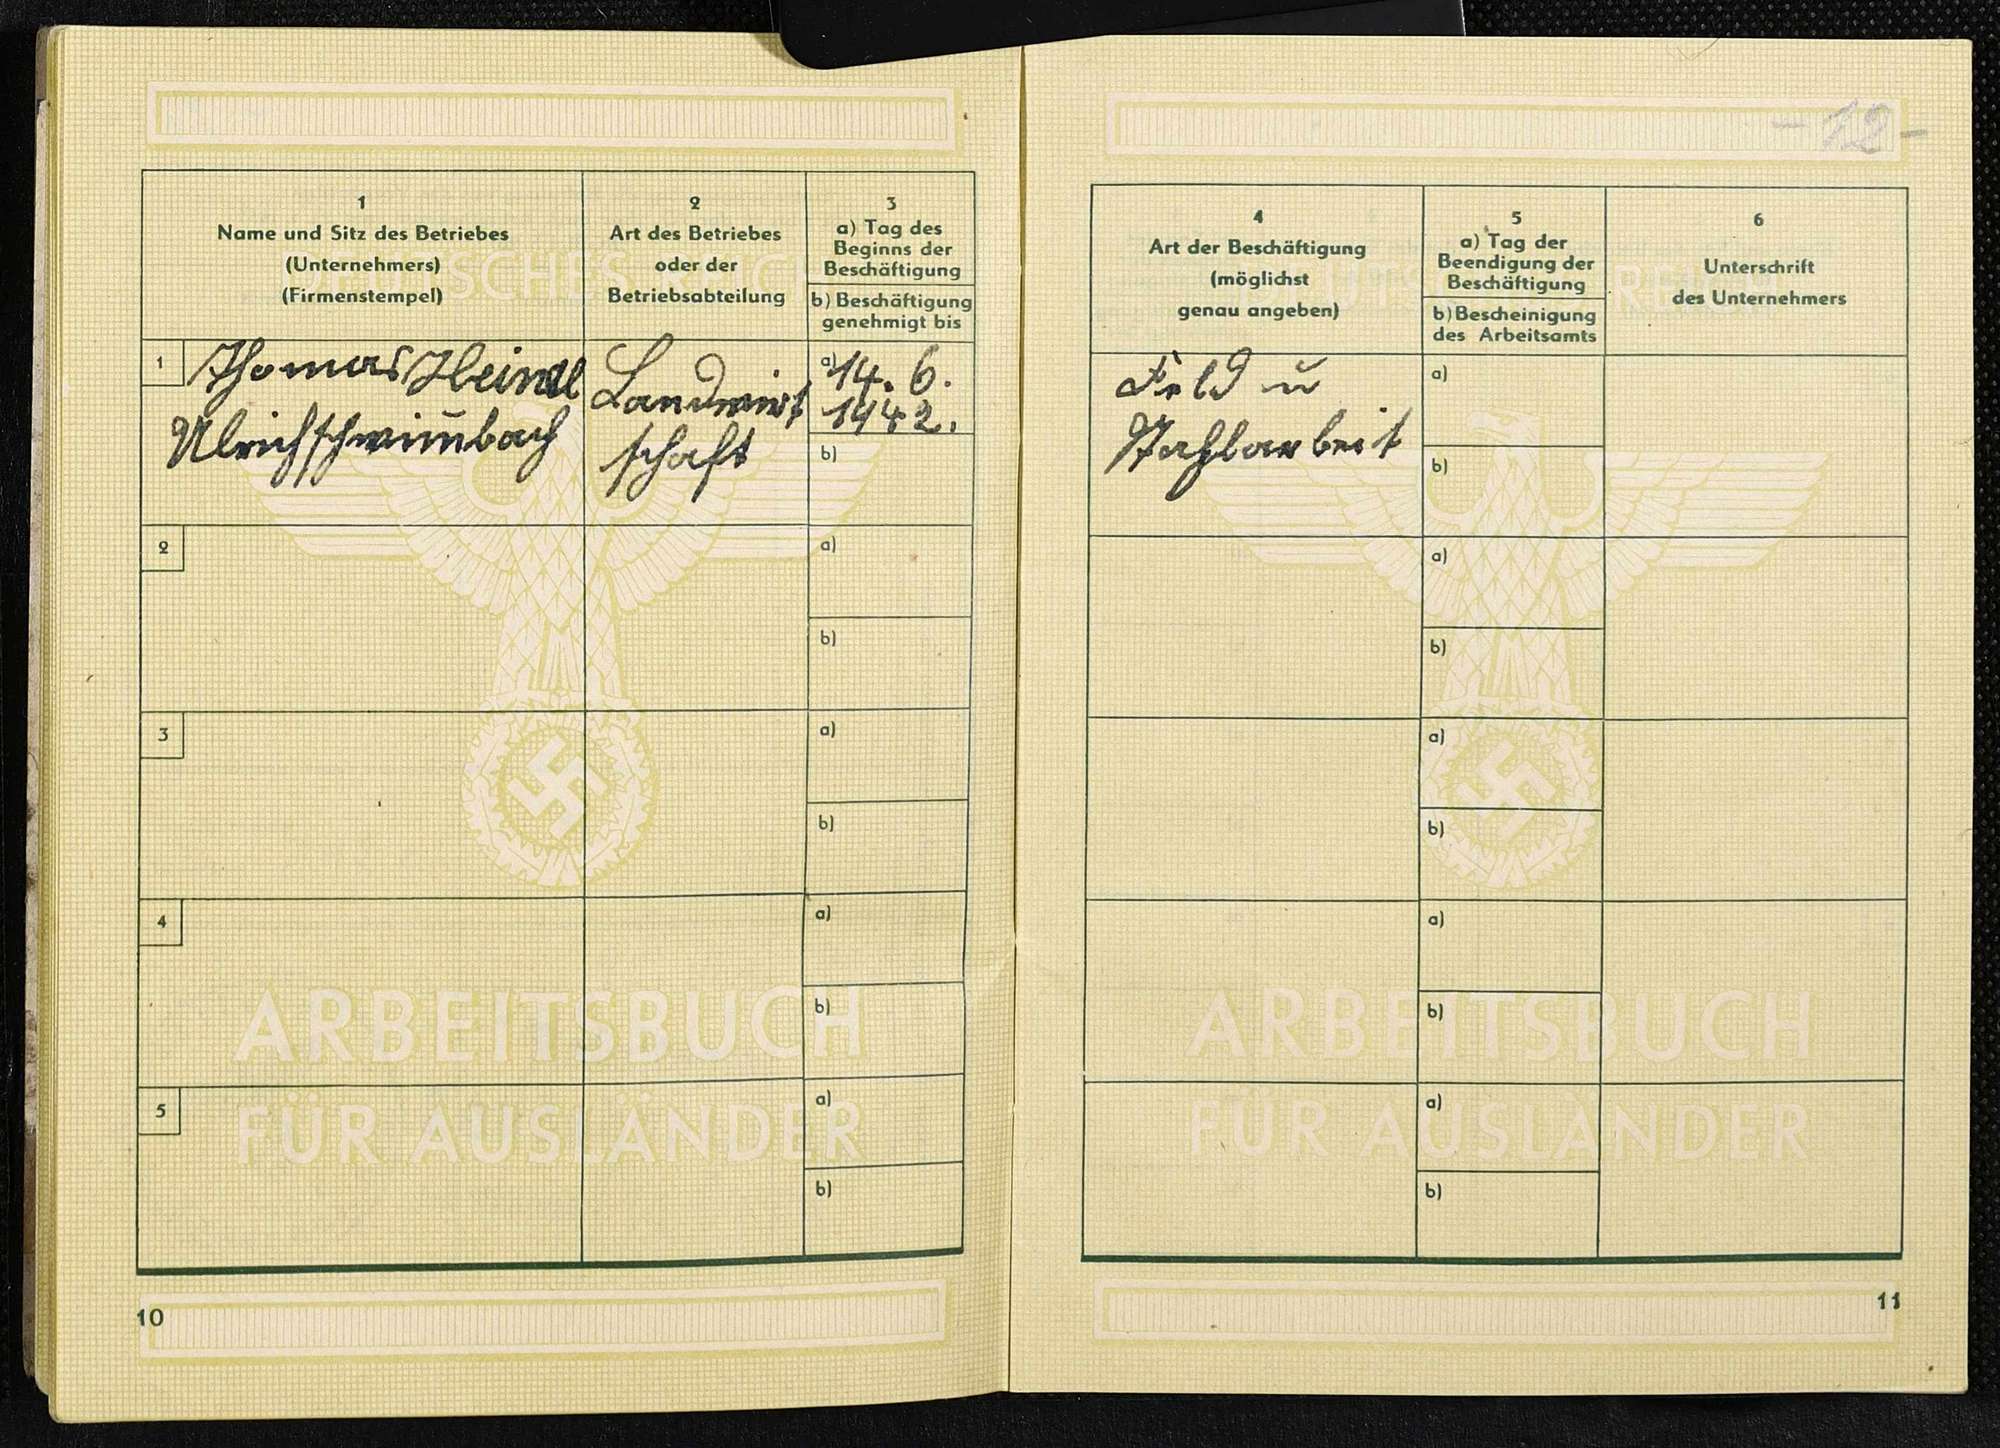 - 12 -
1
Name und Sitz des Betriebes
(Unternehmers)
(Firmenstempel)
2
Art des Betriebes
oder der
Betriebsabteilung
3
a) Tag des
Beginns der
Beschäftigung
b) Beschäftigung
genehmigt bis
1
Thomas Heindl
Ulrichschwimmbach
Landwirt
schaft
a) 14. 6.
1942.
b)
2
a)
b)
3
a)
b)
4
a)
b)
5
a)
b)
ARBEITSBUCH
FÜR AUSLÄNDER
10
4
Art der Beschäftigung
(möglichst
genau angeben)
5
a) Tag der
Beendigung der
Beschäftigung
b) Bescheinigung
des Arbeitsamts
6
Unterschrift
des Unternehmers
Feld u
Stahlarbeit
a)
b)
a)
b)
a)
b)
a)
b)
a)
b)
ARBEITSBUCH
FÜR AUSLÄNDER
11